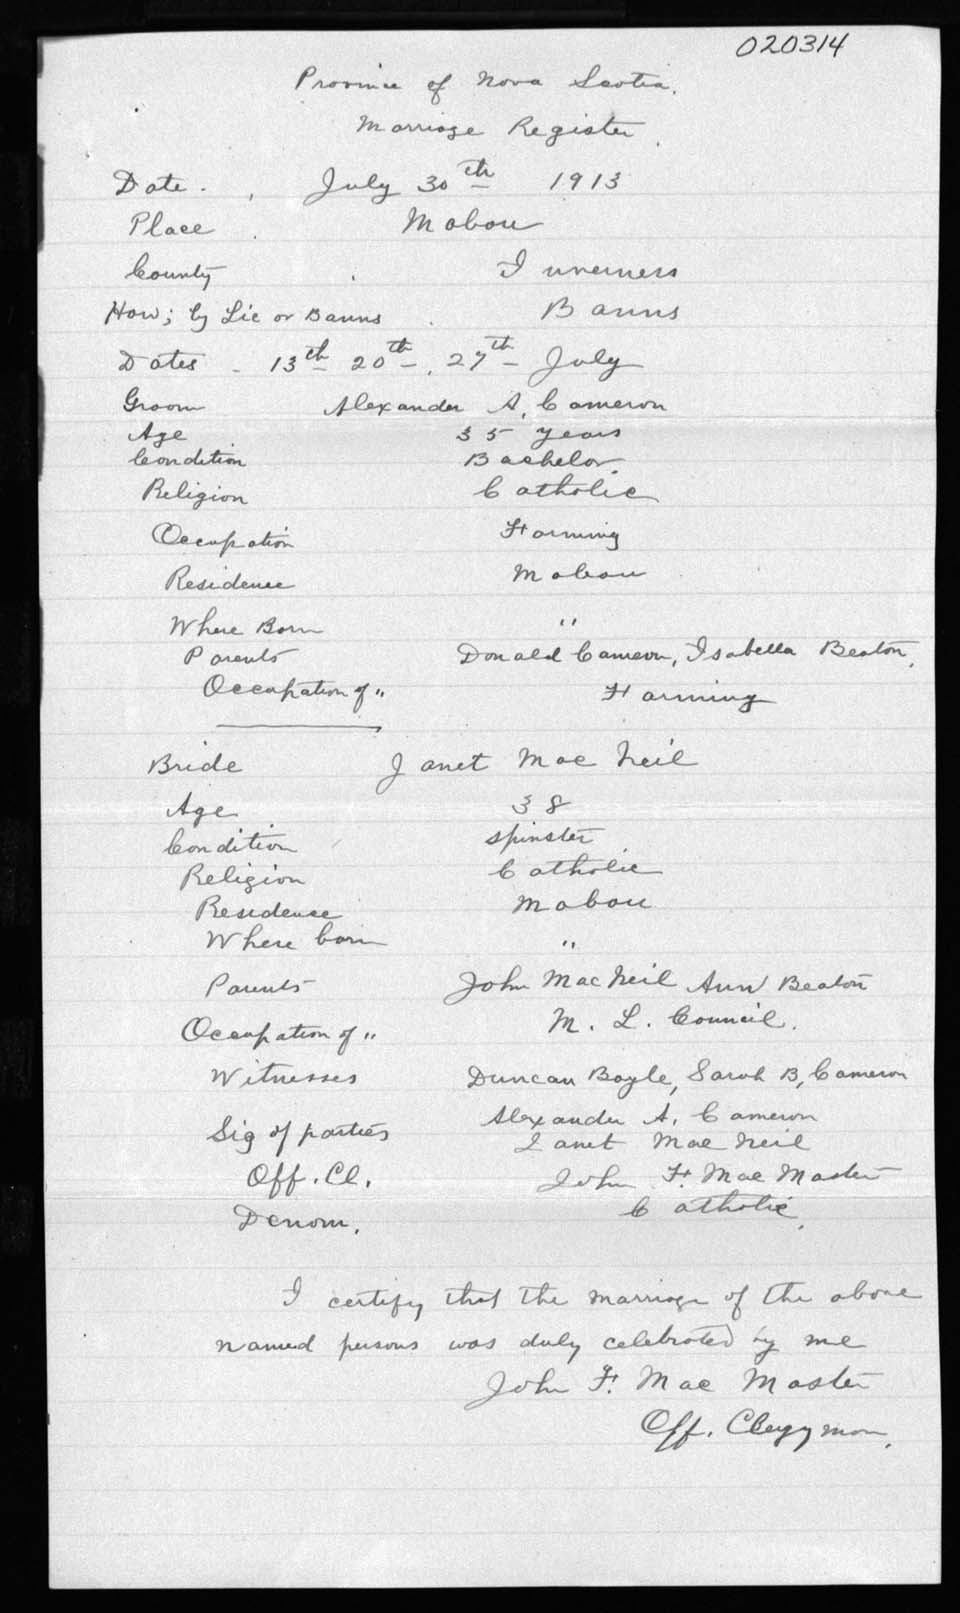 020314
Province of Nova Scotia.
Marriage Register.
Date. , July 30th 1913
Place . Mabou
County . Inverness
How; by Lic or Banns . Banns
Dates - 13th 20th, 27th July
Groom Alexander A. Cameron
Age 35 years
Condition Bachelor
Religion Catholic
Occupation Farming
Residence Mabou
Where Born "
Parents Donald Cameron, Isabella Beaton,
Occupation of " Farming
Bride Janet MacNeil
Age 38
Condition spinster
Religion Catholic
Residence Mabou
Where born "
Parents John MacNeil Ann Beaton
Occupation of " M. L. Council.
Witnesses Duncan Boyle, Sarah B, Cameron
Sig of parties Alexander A. Cameron
Janet MacNeil
Off. Cl. John F. MacMaster
Denom. Catholic.
I certify that the marriage of the above
named persons was duly celebrated by me
John F. MacMaster
Off. Clergyman.